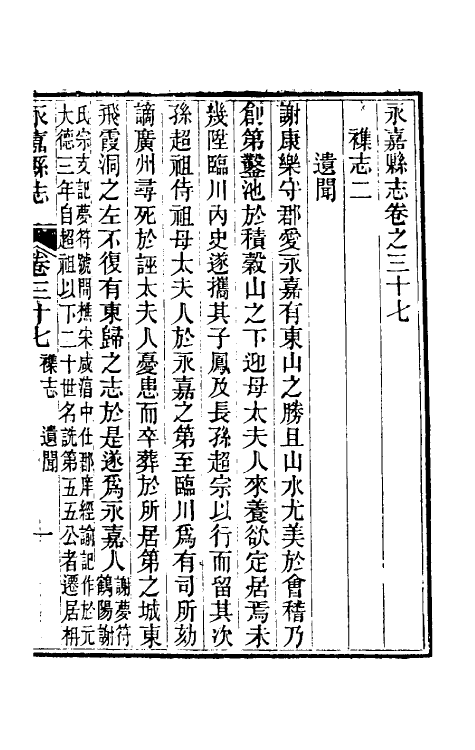 永嘉縣志卷之三十七
襍志二
遺聞
謝康樂守郡愛永嘉有東山之勝且山水尤美於會稽乃
創第鑿池於積穀山之下迎母太夫人來養欲定居焉未
幾陞臨川內史遂攜其子鳳及長孫超宗以行而留其次
孫超祖侍祖母太夫人於永嘉之第至臨川爲有司所劾
謫廣州尋死於誣太夫人憂患而卒葬於所居第之城東
飛霞洞之左不復有東歸之志於是遂爲永嘉人謝夢符鶴陽謝
氏宗支記夢符號問樵宋咸淳中仕郡庠經諭記作於元
大德三年自超祖以下二十世名詵第五五公者遷居枏
永嘉縣志 卷三十七 襍志 遺聞 一